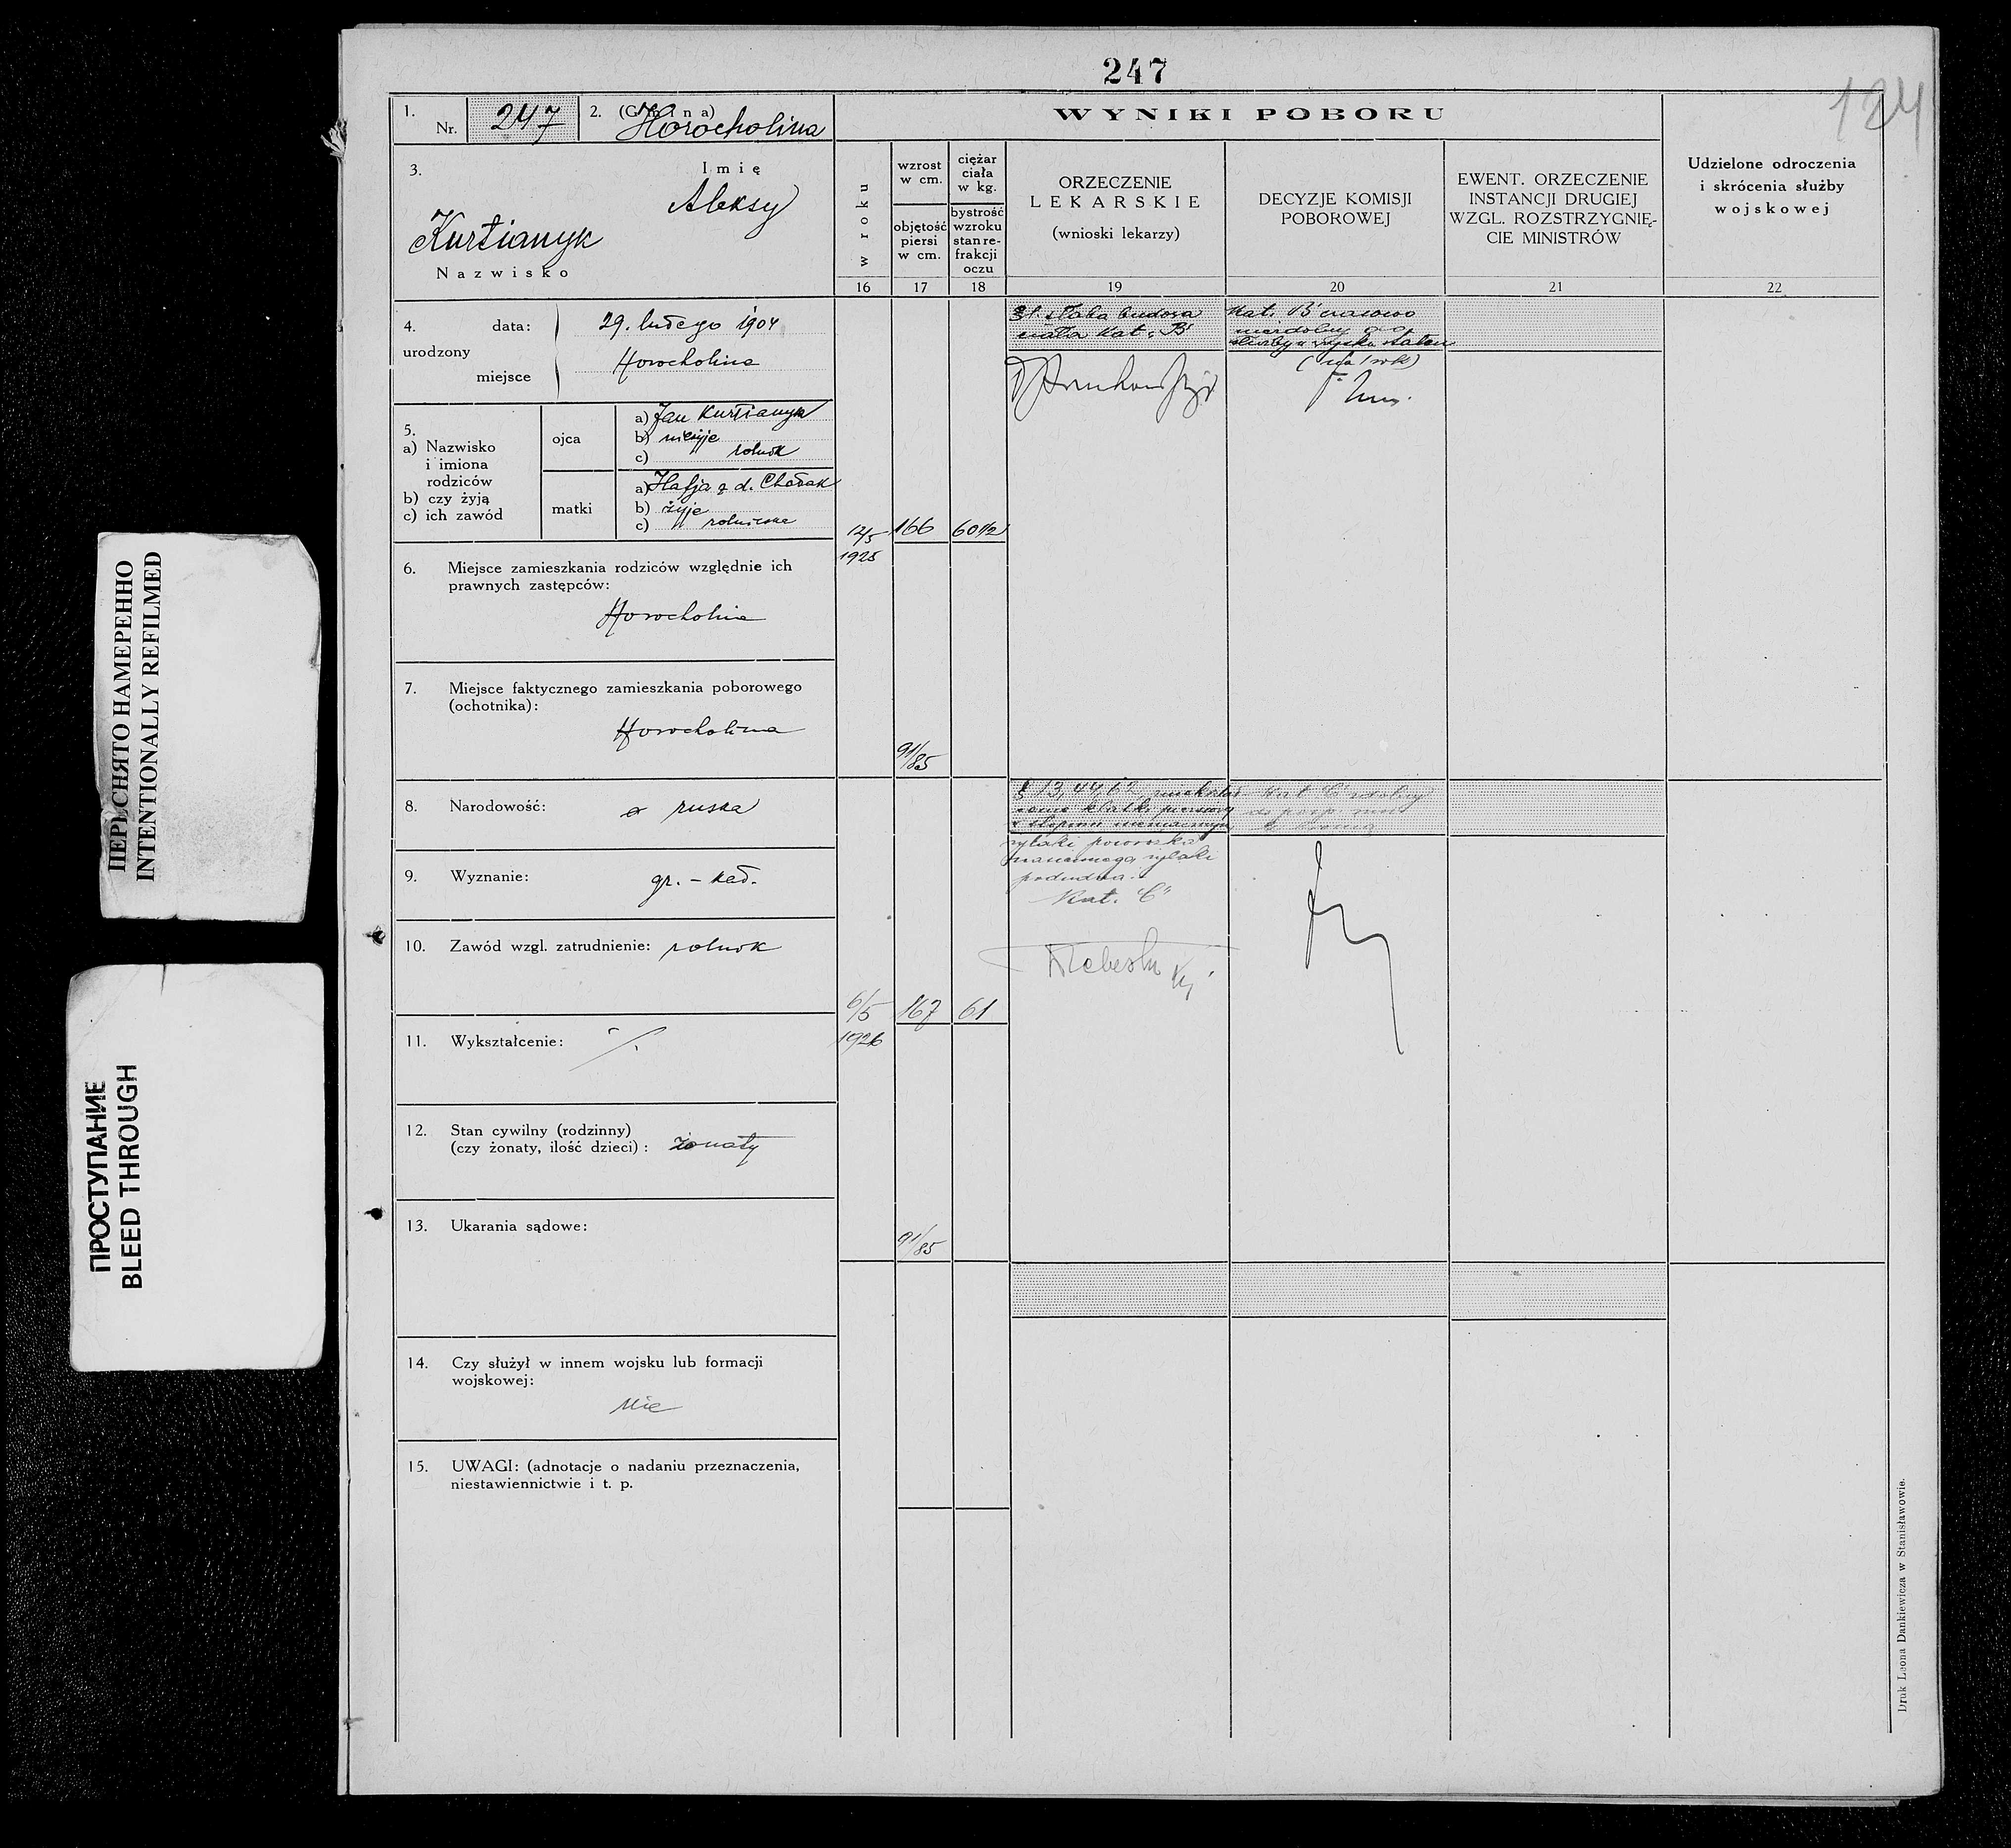 247
124
1.
Nr. 247
2. (Gmina)
Horocholina
WYNIKI POBORU
3.
Imię
Aleksy
Kurtianyk
Nazwisko
w roku
wzrost
w cm.
objętość
piersi
w cm.
ciężar
ciała
w kg.
bystrość
wzroku
stan re-
frakcji
oczu
ORZECZENIE
LEKARSKIE
(wnioski lekarzy)
DECYZJE KOMISJI
POBOROWEJ
EWENT. ORZECZENIE
INSTANCJI DRUGIEJ
WZGL. ROZSTRZYGNIĘ-
CIE MINISTRÓW
Udzielone odroczenia
i skrócenia służby
wojskowej
16 17 18 19 20 21 22
4.
urodzony
data: 29. lutego 1904
miejsce Horocholina
5.
a) Nazwisko
i imiona
rodziców
b) czy żyją
c) ich zawód
ojca
a) Jan Kurtianyk
b) nieżyje
c) rolnik
matki
a) Hafja z d. Chodak
b) żyje
c) rolniczka
6. Miejsce zamieszkania rodziców względnie ich
prawnych zastępców:
Horocholina
7. Miejsce faktycznego zamieszkania poborowego
(ochotnika):
Horocholina
8. Narodowość: ruska
9. Wyznanie: gr. – kat.
10. Zawód wzgl. zatrudnienie: rolnik
11. Wykształcenie:
12. Stan cywilny (rodzinny)
(czy żonaty, ilość dzieci): żonaty
13. Ukarania sądowe:
14. Czy służył w innem wojsku lub formacji
wojskowej:
nie
15. UWAGI: (adnotacje o nadaniu przeznaczenia,
niestawiennictwie i t. p.
12/5
1925
166
60 1/2
91/85
słaba budowa
ciała Kat. B
Kat. B czasowo
niezdolny do
służby w wojsku stałem
(na 1 rok)
6/5
1926
167
61
91/85
§ 13, 44
klatki piersiowej
w stopniu nieznacznym
żylaki powrózka
nasiennego żylaki
podudzia.
Kat. "C"
Kat C zdolny
do posp. rusz.
z bronią
Druk Leona Dankiewicza w Stanisławowie.
ПЕРЕСНЯТО НАМЕРЕННО
INTENTIONALLY REFILMED
ПРОСТУПАНИЕ
BLEED THROUGH